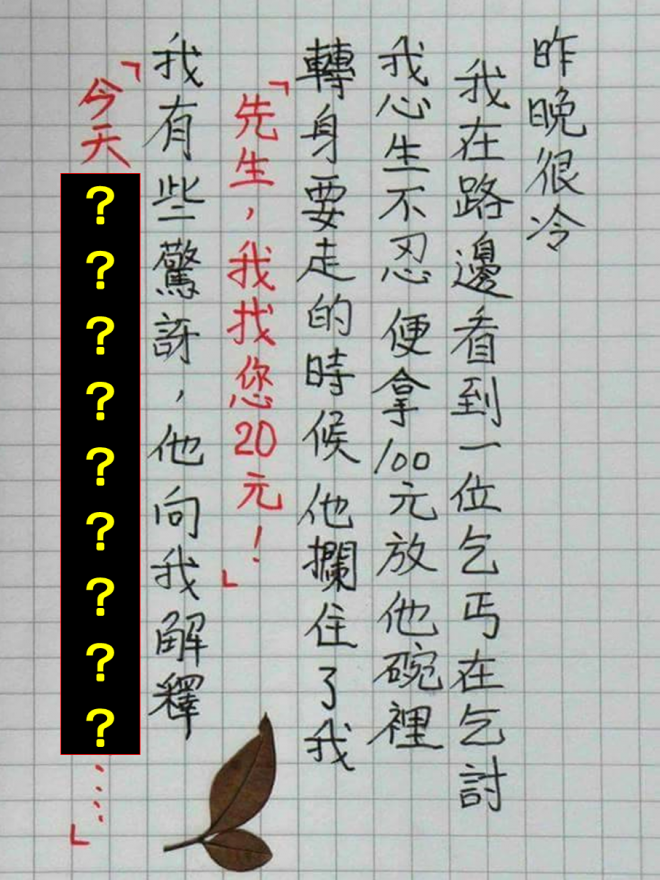 昨晚很冷
我在路邊看到一位乞丐在乞討
我心生不忍便拿100元放他碗裡
轉身要走的時候他攔住了我
「先生，我找您20元！」
我有些驚訝，他向我解釋
「今天？？？？？？？？？……」